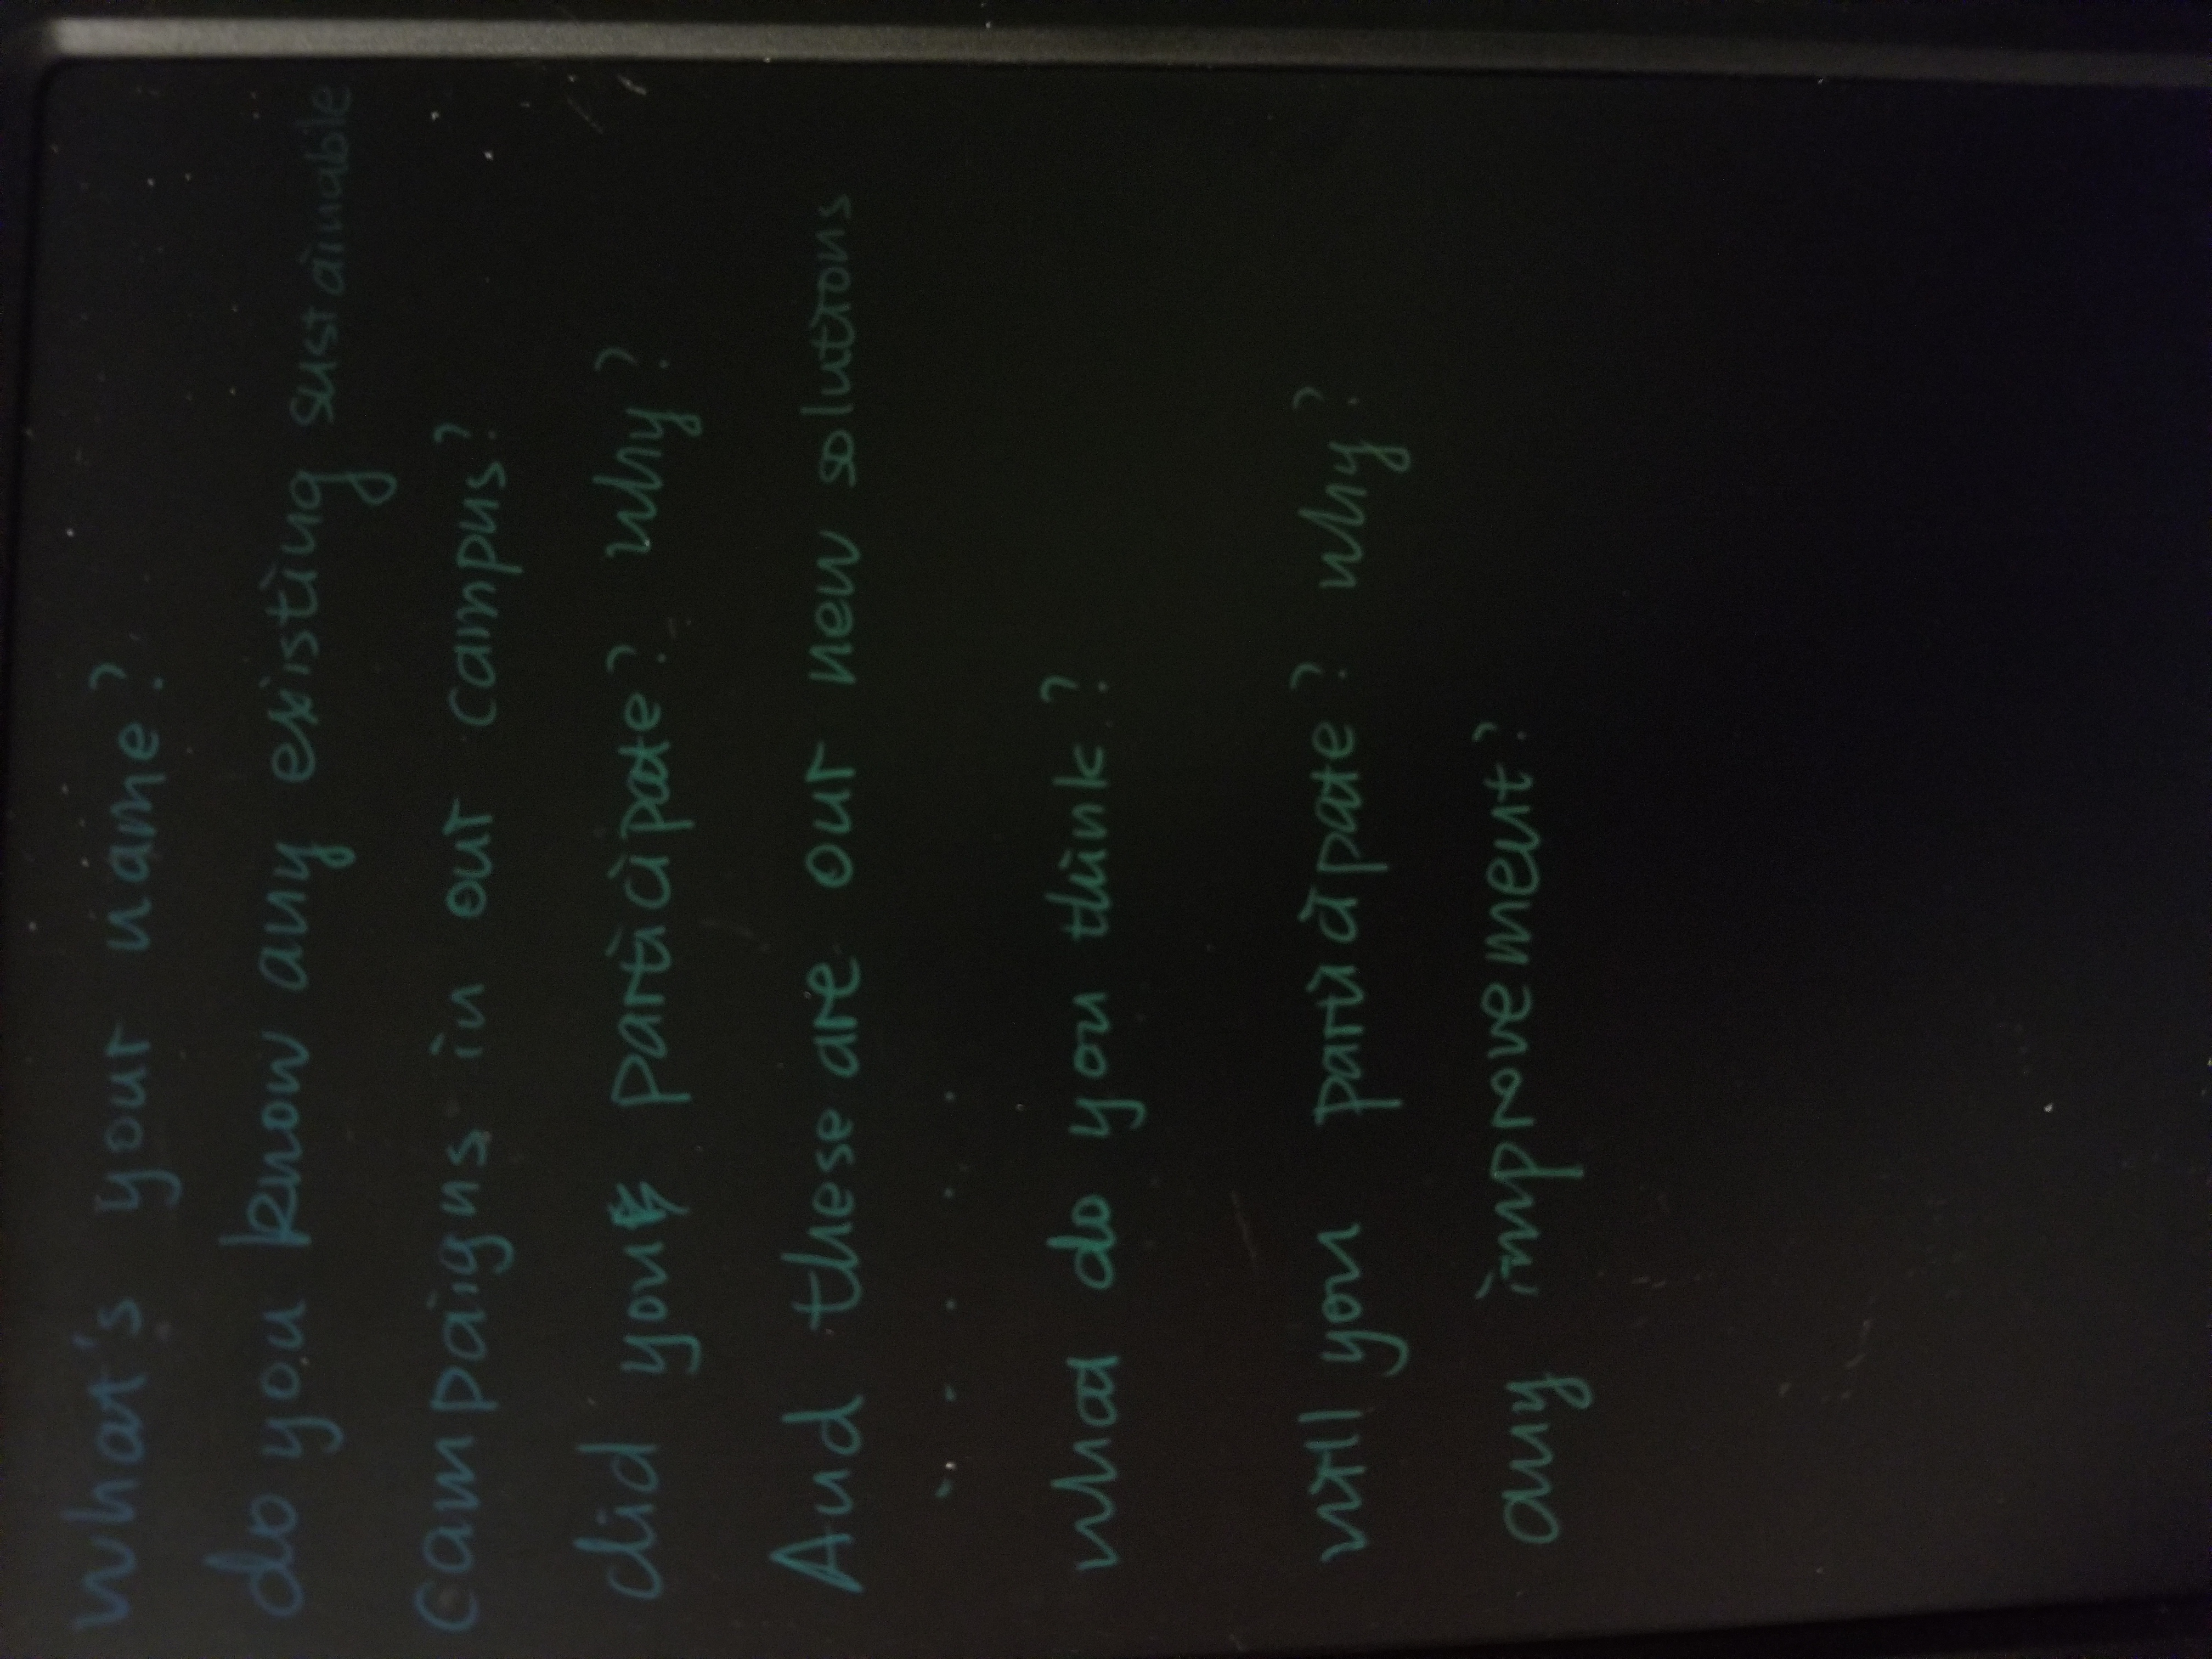 What's your name?
do you know any existing sustainable
campaigns in our campus?
did you participate? why?
And these are our new solutions
. . . . .
what do you think?
will you participate? why?
any improvement?